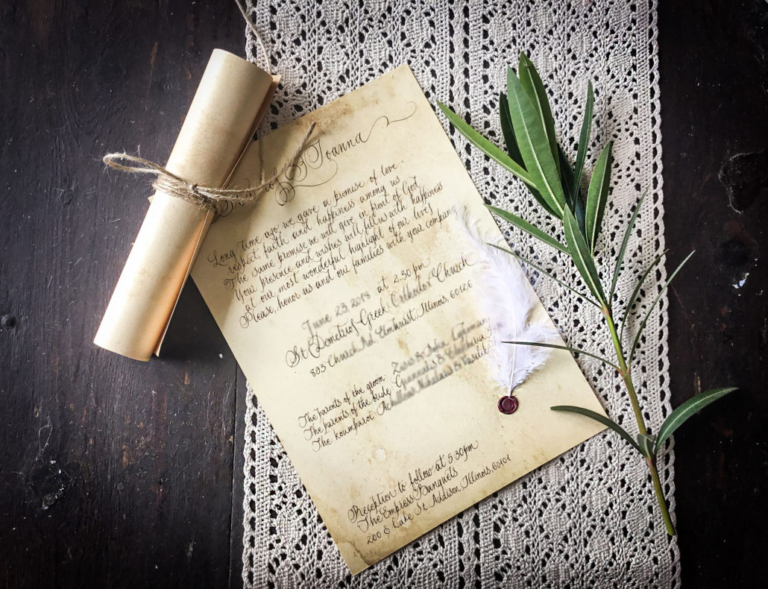 & Joanna
Long time ago we gave a promise of love
respect, faith and happiness among us
The same promise we will give in front of God
Your presence and wishes will fill us with happiness
At our most wonderful highlight of our lives
Please, honor us and our families with your company
June 23 2018 at 2:30 pm
St Demetrios Greek Orthodox Church
893 Church Rd Elmhurst Illinois, 60126
The parents of the groom
The parents of the bride
The koumparoi
Reception to follow at 5:30pm
The Empress Banquets
200 E Lake St Addison Illinois, 60101